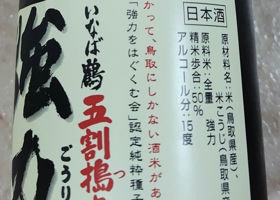 日本酒
原材料名:米(鳥取県産)、
米こうじ(鳥取県産
原料米:全量 強力
精米歩合:50%
アルコール分:15度
かつて、鳥取にしかない酒米があ
「強力をはぐくむ会」認定純粋種子
いなば鶴
五割搗
つ
強力
ごうり